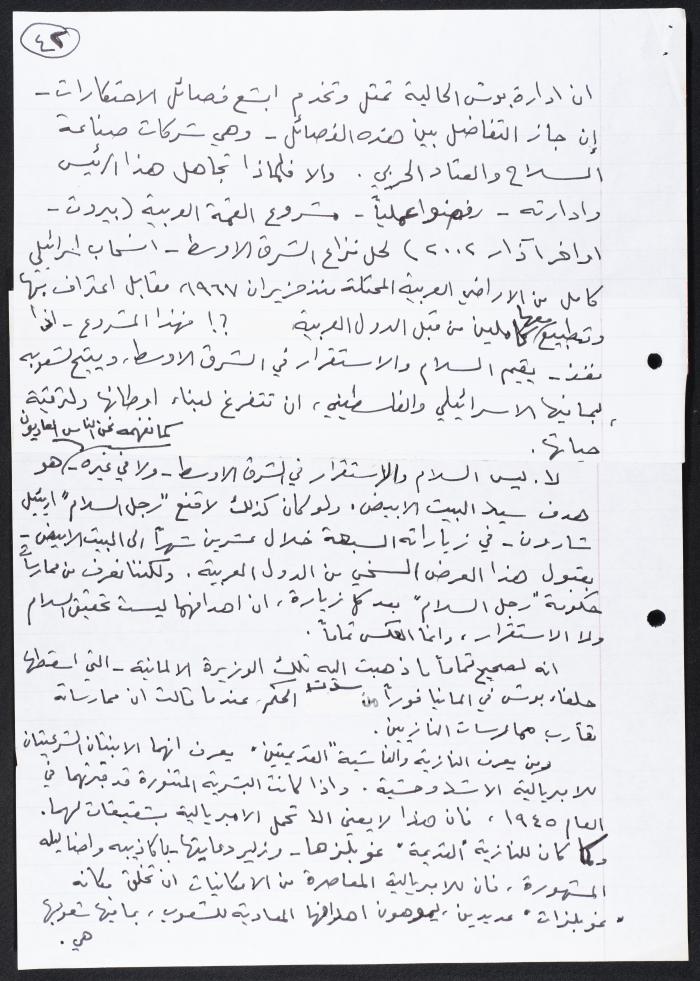 ٤٢
ان ادارة بوش الحالية تمثل وتخدم ابشع فصائل الاحتكارات -
إن جاز التفاضل بين هذه الفصائل - وهي شركات صناعة
السلاح والعتاد الحربي . والا فلماذا تجاهل هذا الرئيس
وادارته - رفضوا عملياً - مشروع القمة العربية (بيروت -
اواخر آذار ٢٠٠٢) لحل نزاع الشرق الاوسط - انسحاب اسرائيلي
كامل من الاراضي العربية المحتلة منذ حزيران ١٩٦٧، مقابل اعتراف بها
وتطبيع معها كاملين من قبل الدول العربية ؟! فهذا المشروع - اذا
نفذ - يقيم السلام والاستقرار في الشرق الاوسط، ويتيح لشعوبه
بما فيها الاسرائيلي والفلسطيني، ان تتفرغ لبناء اوطانها ولترقية
حياتها .
كما نفهمه نحن الناس العاديون
لا. ليس السلام والاستقرار في الشرق الاوسط - ولا في غيره - هو
هدف سيد البيت الابيض. ولو كان كذلك لاقنع "رجل السلام" ارئيل
شارون - في زياراته السبعة خلال عشرين شهراً الى البيت الابيض -
بقبول هذا العرض السخي من الدول العربية . ولكننا نعرف من ممارسات
حكومة "رجل السلام" بعد كل زيارة، ان اهدافهما ليست تحقيق السلام
ولا الاستقرار، وانما العكس تماماً .
انه لصحيح تماماً ما ذهبت اليه تلك الوزيرة الالمانية - التي اسقطها
حلفاء بوش في المانيا فوراً من سدة الحكم، عندما قالت ان ممارساته
تقارب ممارسات النازيين .
ومن يعرف النازية والفاشية "القديمتين" يعرف انهما الابنتان الشرعيتان
للامبريالية الاشد وحشية . واذا كانت البشرية المتنورة قد قبرتهما في
العام ١٩٤٥، فان هذا لا يعني الا تحمل الامبريالية بشقيقات لهما.
وكما كان للنازية "القديمة" غوبلزها - وزير دعايتها - باكاذيبه واضاليله
المشهورة، فان للامبريالية المعاصرة من الامكانيات ان تخلق مكانه
"غوبلزات" عديدين، يموهون اهدافها المعادية للشعوب، بما فيها شعوبها
هي .